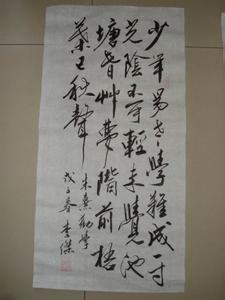 少年易老學難成一寸
光陰不可輕未覺池
塘春艸夢階前梧
葉已秋聲
朱熹勸學
戊子春 李傑